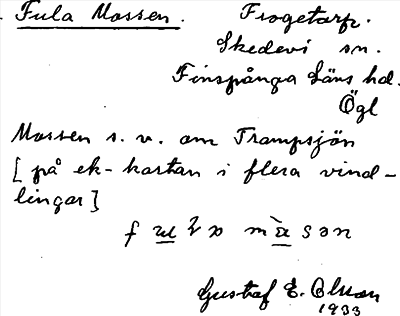 Fula Mossen. Frogetorp.
Skedevi sn.
Finspånga Läns hd.
Ögl
Mossen s. v. om Trampsjön
[ på ek-kartan i flera vind-
lingar]
Gustaf E. Olsson
1933